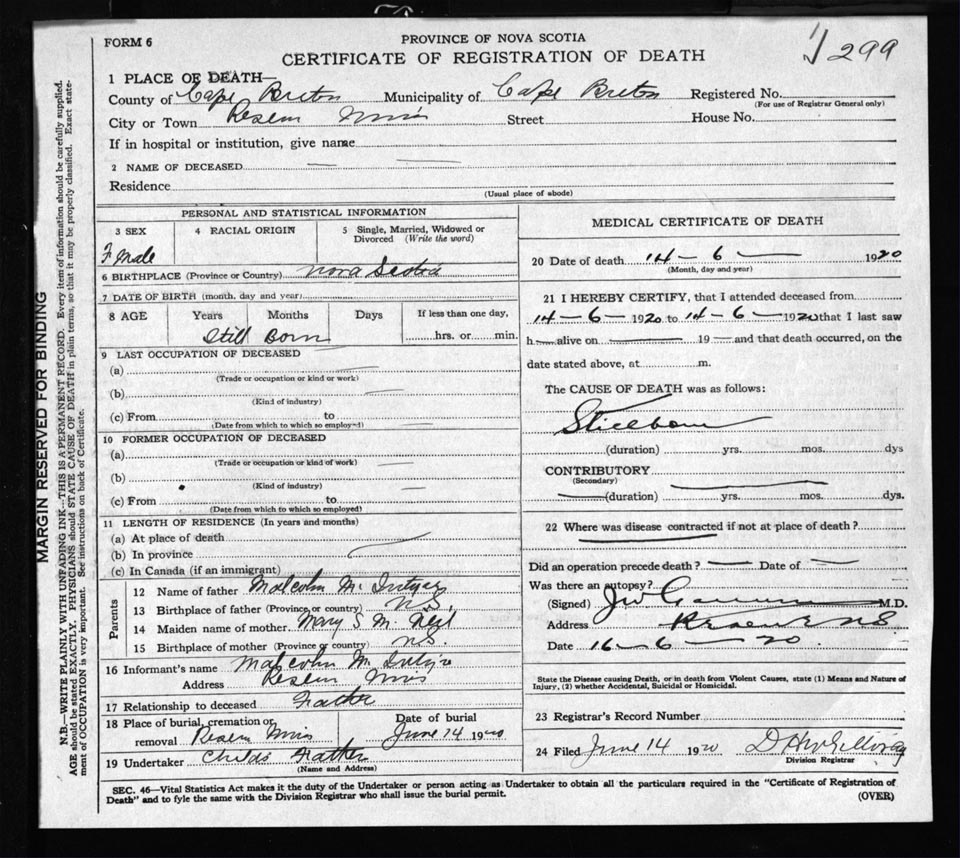 FORM 6
PROVINCE OF NOVA SCOTIA
CERTIFICATE OF REGISTRATION OF DEATH
299
1 PLACE OF DEATH—
County of Cape Breton Municipality of Cape Breton Registered No.
(For use of Registrar General only)
City or Town Street House No.
If in hospital or institution, give name
2 NAME OF DECEASED
Residence
(Usual place of abode)
PERSONAL AND STATISTICAL INFORMATION
3 SEX
4 RACIAL ORIGIN
5 Single, Married, Widowed or Divorced (Write the word)
Female
6 BIRTHPLACE (Province or Country) Nova Scotia
7 DATE OF BIRTH (month, day and year)
8 AGE Years Months Days If less than one day,
Still Born hrs. or min.
9 LAST OCCUPATION OF DECEASED
(a)
(Trade or occupation or kind or work)
(b)
(Kind of industry)
(c) From to
(Date from which to which so employed)
10 FORMER OCCUPATION OF DECEASED
(a)
(Trade or occupation or kind of work)
(b)
(Kind of industry)
(c) From to
(Date from which to which so employed)
11 LENGTH OF RESIDENCE (In years and months)
(a) At place of death
(b) In province
(c) In Canada (if an immigrant)
Parents
12 Name of father Malcolm Mc Intyre
13 Birthplace of father (Province or country) N.S.
14 Maiden name of mother Mary S Mc Neil
15 Birthplace of mother (Province or country) N S
16 Informant's name Malcolm Mc
Address
17 Relationship to deceased Father
18 Place of burial, cremation or Date of burial
removal June 14 1920
19 Undertaker Childs Father
(Name and Address)
MEDICAL CERTIFICATE OF DEATH
20 Date of death 14 – 6 – 1920
(Month, day and year)
21 I HEREBY CERTIFY, that I attended deceased from
14 – 6 – 1920 to 14 – 6 – 1920 that I last saw
h — alive on — 19 — and that death occurred, on the
date stated above, at m.
The CAUSE OF DEATH was as follows:
Stillborn
(duration) yrs. mos. dys
CONTRIBUTORY
(Secondary)
(duration) yrs. mos. dys.
22 Where was disease contracted if not at place of death?
Did an operation precede death? — Date of —
Was there an autopsy?
(Signed) M.D.
Address N.S.
Date 16 – 6 – 20
State the Disease causing Death, or in death from Violent Causes, state (1) Means and Nature of
Injury, (2) whether Accidental, Suicidal or Homicidal.
23 Registrar's Record Number
24 Filed June 14 1920
Division Registrar
SEC. 46—Vital Statistics Act makes it the duty of the Undertaker or person acting as Undertaker to obtain all the particulars required in the "Certificate of Registration of
Death" and to fyle the same with the Division Registrar who shall issue the burial permit.
(OVER)
MARGIN RESERVED FOR BINDING
N.B.—WRITE PLAINLY WITH UNFADING INK—THIS IS A PERMANENT RECORD. Every item of information should be carefully supplied.
AGE should be stated EXACTLY. PHYSICIANS should STATE CAUSE OF DEATH in plain terms, so that it may be properly classified. Exact state-
ment of OCCUPATION is very important. See instructions on back of Certificate.